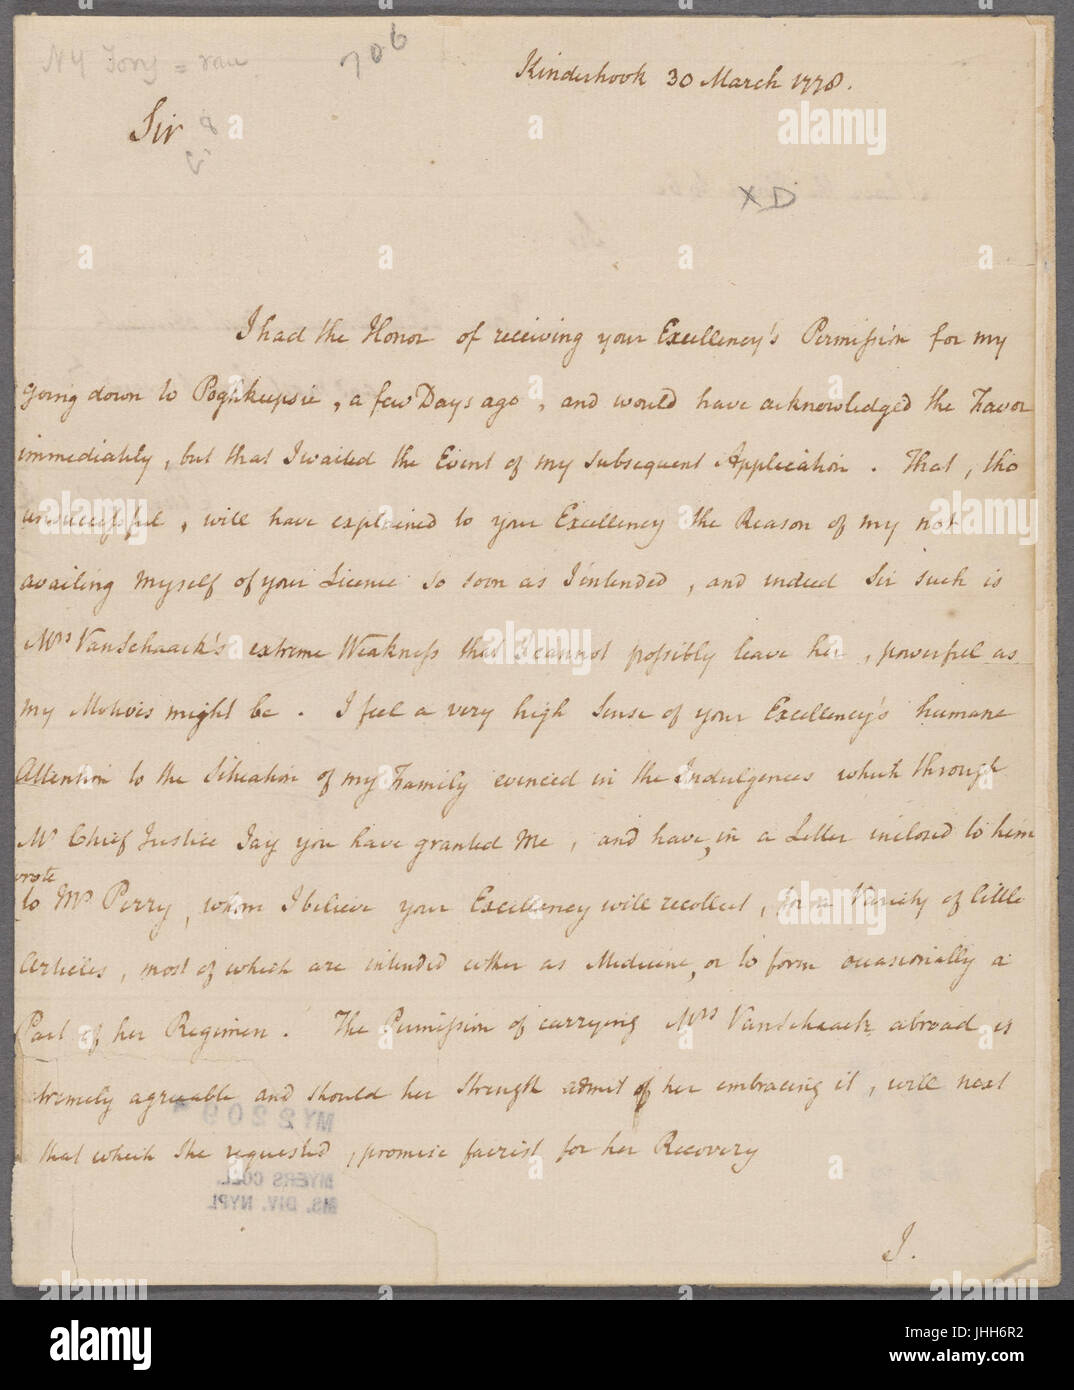 NY Tory =
706
Kinderhook 30 March 1778.
Sir
8
X D
I had the Honor of receiving your Excellency's Permission for my
going down to Poghkeepsie, a few Days ago, and would have acknowledged the Favor
immediately, but that I waited the Event of my subsequent Application. That, tho
unsuccessful, will have explained to your Excellency the Reason of my not
availing myself of your Licence so soon as I intended, and indeed Sir such is
Mrs VanSchaack's extreme Weakness that I cannot possibly leave her, powerful as
my Motives might be. I feel a very high Sense of your Excellency's humane
Attention to the Situation of my Family evinced in the Indulgences which through
Mr Chief Justice Jay you have granted Me, and have, in a Letter inclosed to him
wrote
to Mr Perry, whom I believe your Excellency will recollect, for a Variety of little
Articles, most of which are intended either as Medicine, or to form occasionally a
Part of her Regimen. The Permission of carrying Mrs VanSchaack abroad is
extremely agreeable and should her Strength admit of her embracing it, will next
that which she requested, promise fairest for her Recovery
MY2209
MYERS COLL.
MS. DIV. NYPL
I.
alamy
Image ID: JHH6R2
www.alamy.com